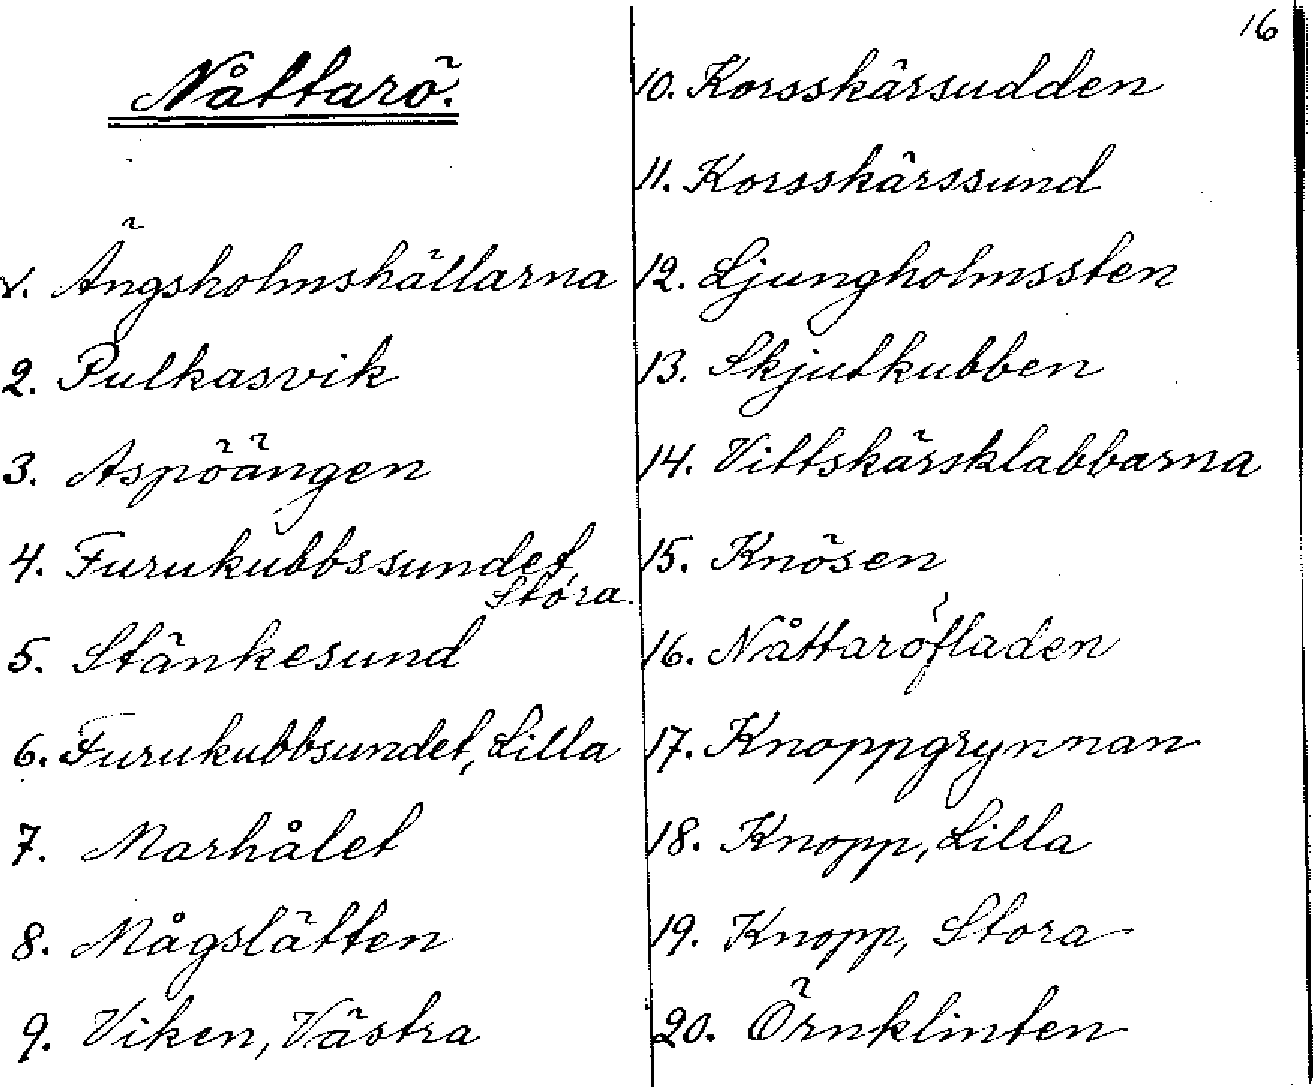 16
Nåttarö.
1. Ängsholmshällarna
2. Pulkasvik
3. Aspöängen
4. Furukubbssundet,
Stora.
5. Stänkesund
6. Furukubbsundet, Lilla
7. Marhålet
8. Mågslätten
9. Viken, Västra
10. Korsskärsudden
11. Korsskärssund
12. Ljungholmssten
13. Skjutkubben
14. Vittskärsklabbarna
15. Knösen
16. Nåttaröfladen
17. Knoppgrynnan
18. Knopp, Lilla
19. Knopp, Stora
20. Örnklinten